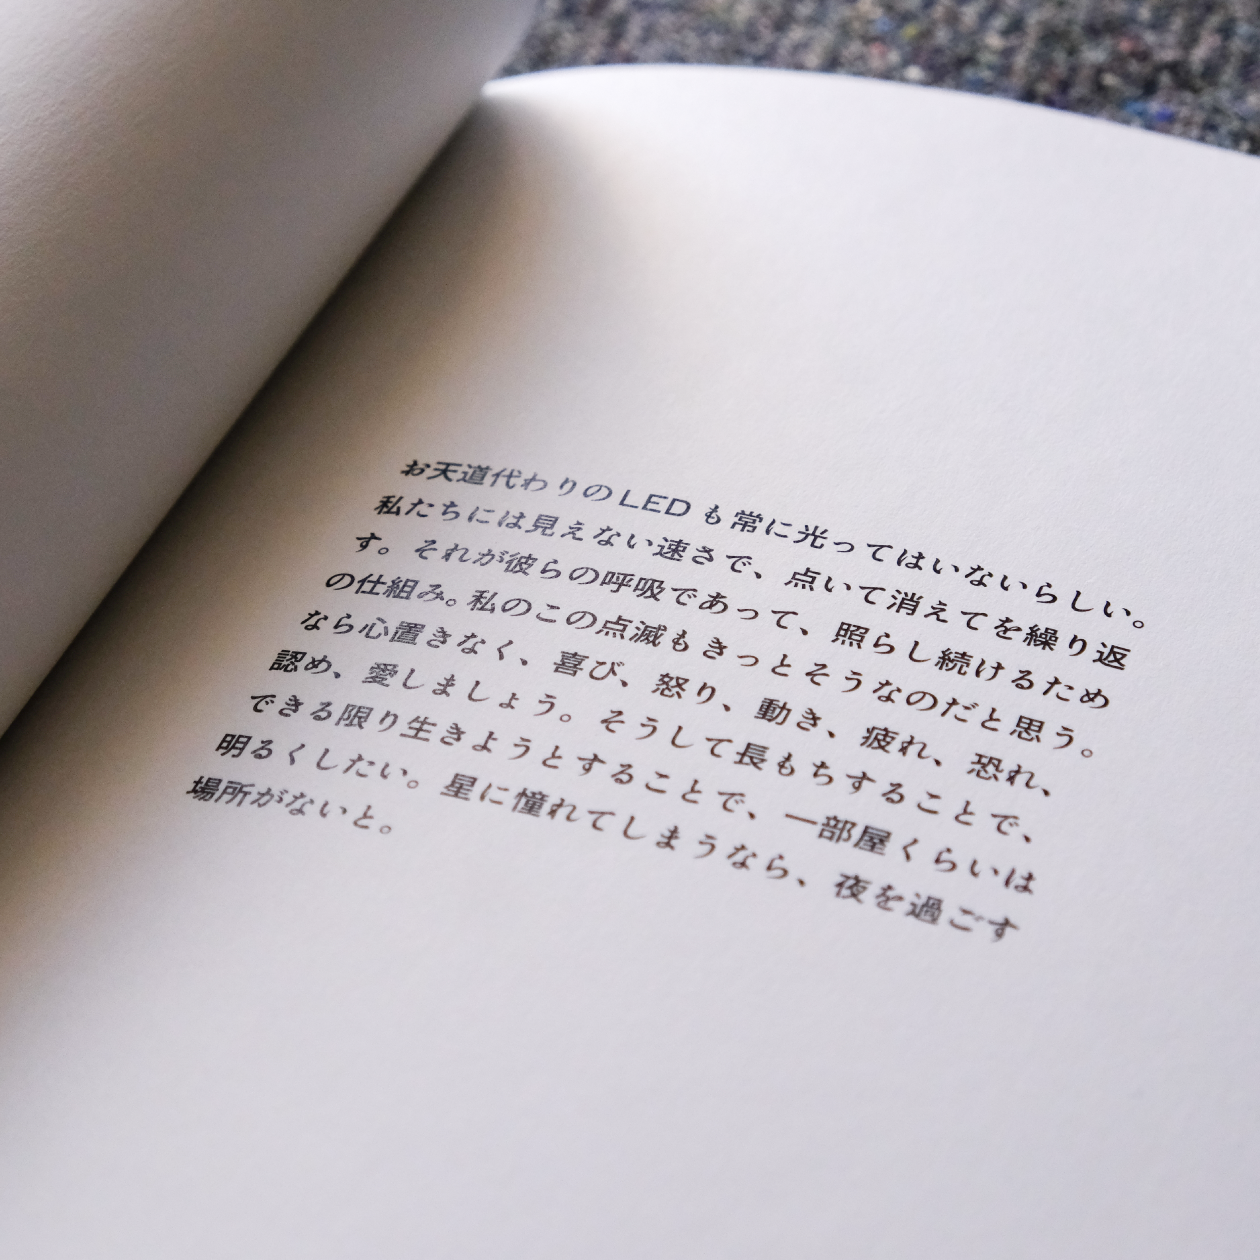 お天道代わりのLEDも常に光ってはいないらしい。
私たちには見えない速さで、点いて消えてを繰り返
す。それが彼らの呼吸であって、照らし続けるため
の仕組み。私のこの点滅もきっとそうなのだと思う。
なら心置きなく、喜び、怒り、動き、疲れ、恐れ、
認め、愛しましょう。そうして長もちすることで、
できる限り生きようとすることで、一部屋くらいは
明るくしたい。星に憧れてしまうなら、夜を過ごす
場所がないと。